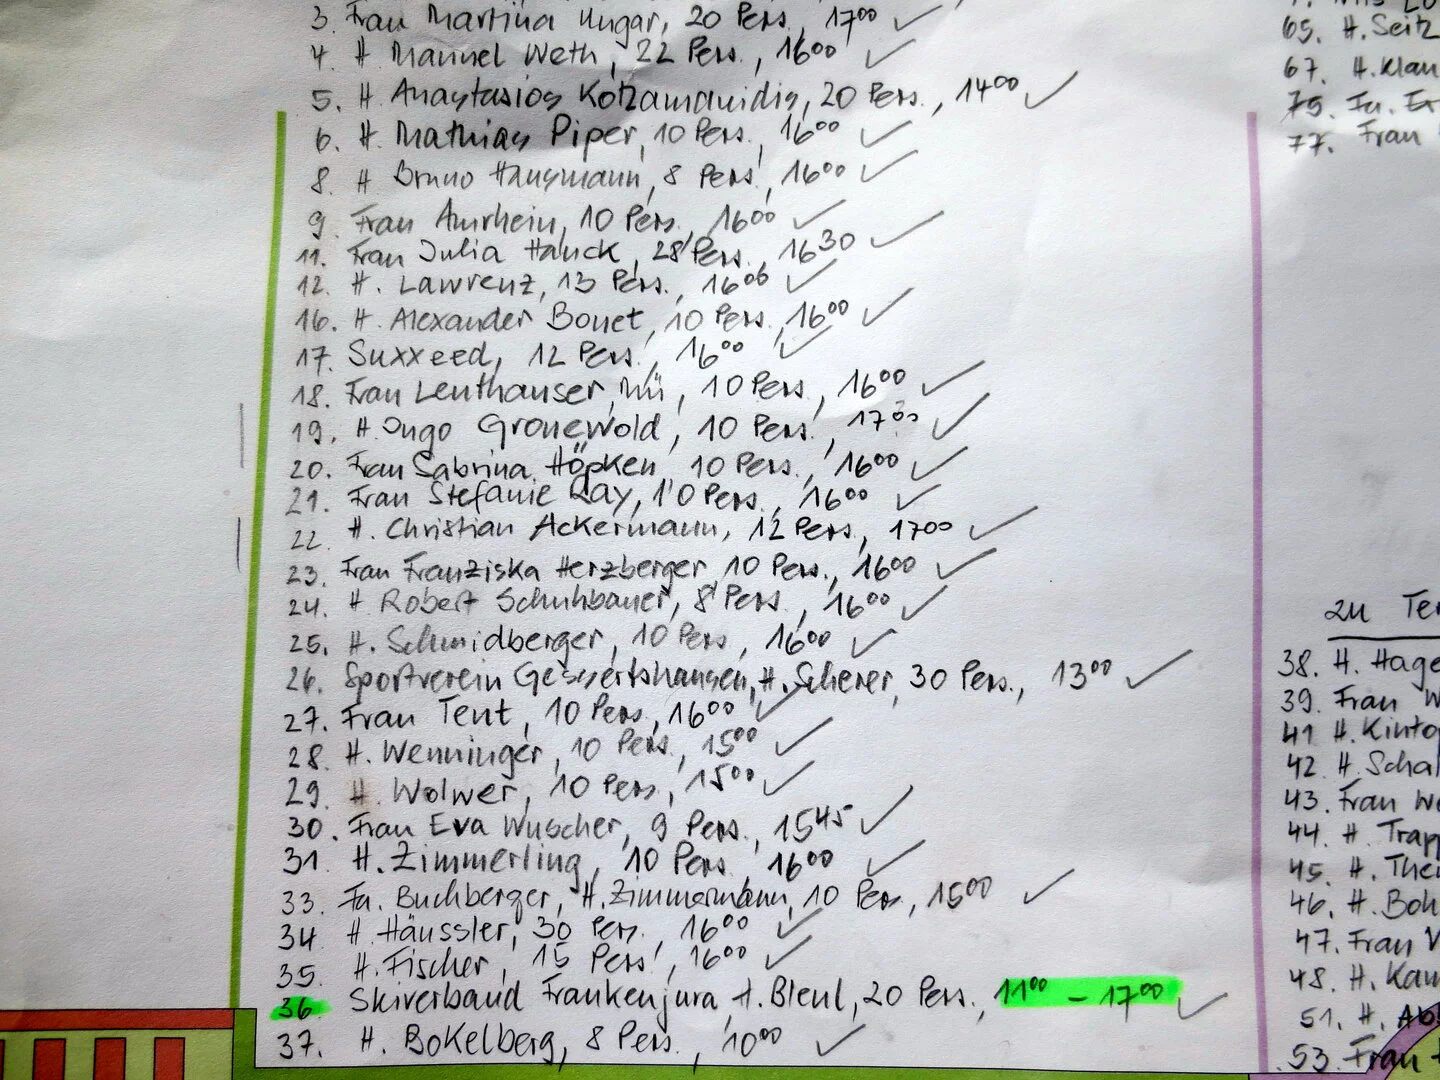 3. Frau Martina Ungar, 20 Pers., 17⁰⁰
4. H. Manuel Weth, 22 Pers., 16⁰⁰
5. H. Anastasios Kotzamanidis, 20 Pers., 14⁰⁰
6. H. Mathias Piper, 10 Pers., 16⁰⁰
8. H Bruno Hausmann, 8 Pers., 16⁰⁰
9. Frau Amrhein, 10 Pers., 16⁰⁰
11. Frau Julia Hauck, 28 Pers., 16³⁰
12. H. Lawrenz, 13 Pers., 16⁰⁰
16. H. Alexander Bouet, 10 Pers., 16⁰⁰
17. Suxxeed, 12 Pers., 16⁰⁰
18. Frau Leuthauser, Nü, 10 Pers., 16⁰⁰
19. H. Ingo Gronewold, 10 Pers., 17⁰⁰
20. Frau Sabrina Höpken, 10 Pers., 16⁰⁰
21. Frau Stefanie Ray, 10 Pers., 16⁰⁰
22. H. Christian Ackermann, 12 Pers., 17⁰⁰
23. Frau Franziska Herzberger, 10 Pers., 16⁰⁰
24. H Robert Schuhbauer, 8 Pers., 16⁰⁰
25. H. Schmidberger, 10 Pers., 16⁰⁰
26. Sportverein Gessertshausen, H. Scherer, 30 Pers., 13⁰⁰
27. Frau Tent, 10 Pers., 16⁰⁰
28. H. Wenninger, 10 Pers., 15⁰⁰
29. H. Wolwer, 10 Pers., 15⁰⁰
30. Frau Eva Wuscher, 9 Pers., 15⁴⁵
31. H. Zimmerling, 10 Pers., 16⁰⁰
33. Fa. Buchberger, H. Zimmermann, 10 Pers., 15⁰⁰
34. H. Häussler, 30 Pers., 16⁰⁰
35. H. Fischer, 15 Pers., 16⁰⁰
36 Skiverband Frankenjura H. Bleul, 20 Pers., 11⁰⁰ – 17⁰⁰
37. H. Bokelberg, 8 Pers., 10⁰⁰
65. H. Seitz
67. H. Klau
75. Fa. Er
77. Frau
zu Ter
38. H. Hage
39. Frau W
41 H. Kinto
42. H. Scha
43. Frau We
44. H. Trapp
45. H. Thei
46. H. Boh
47. Frau W
48. H. Kam
51. H. Ab
53. Frau